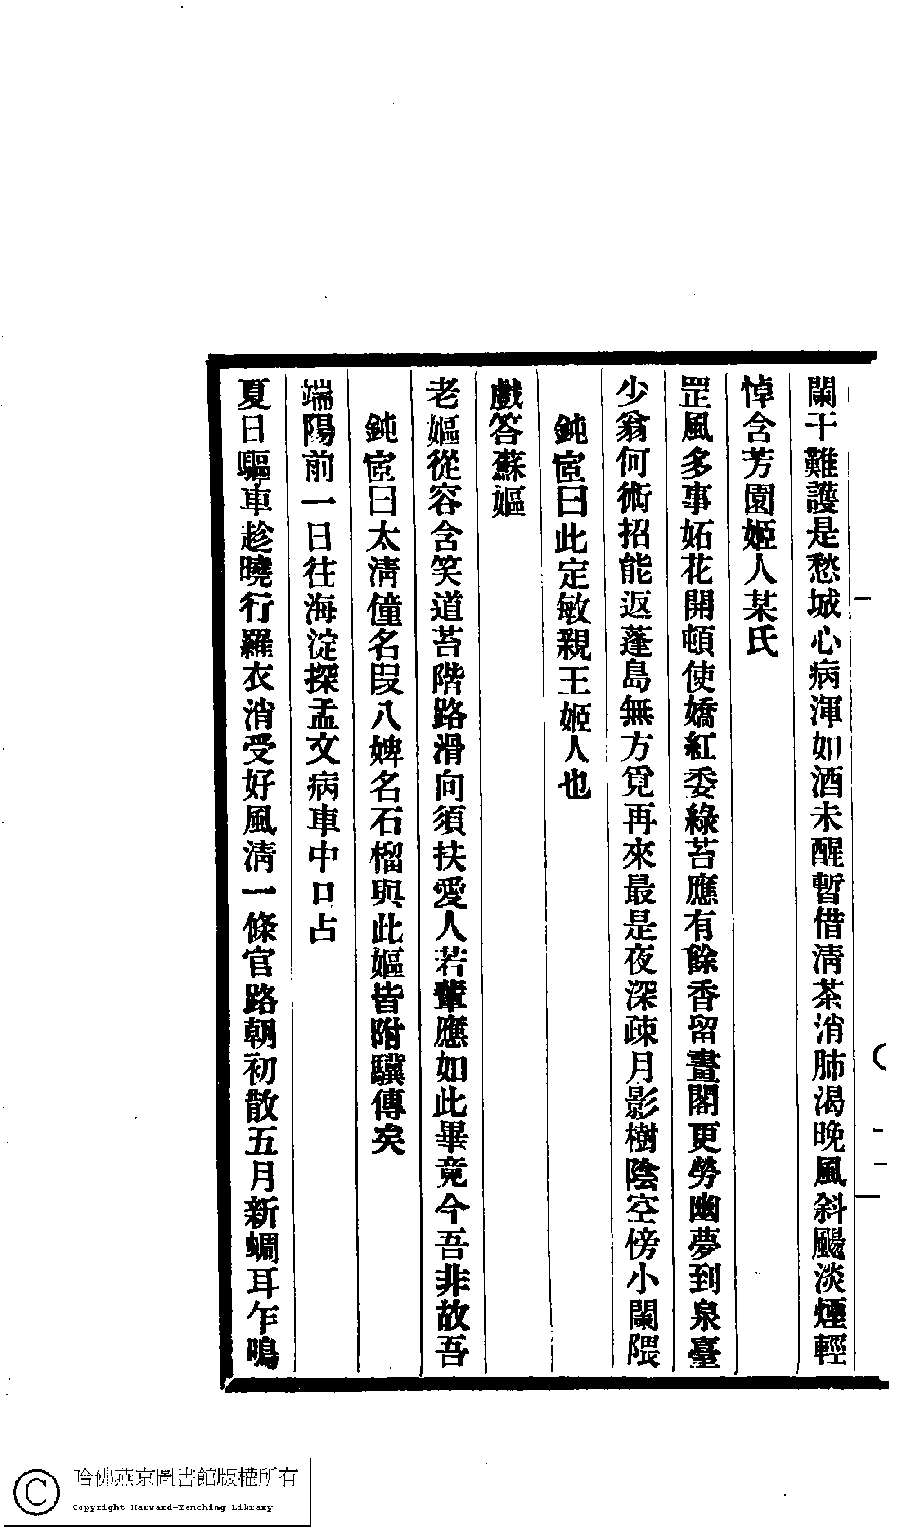 闌干難護是愁城心病渾如酒未醒暫借淸茶消肺渴晚風斜颺淡煙輕
悼含芳園姬人某氏
罡風多事妬花開頓使嬌紅委綠苔應有餘香留畫閣更勞幽夢到泉臺
少翁何術招能返蓬島無方覓再來最是夜深疎月影樹陰空傍小闌隈
鈍宧曰此定敏親王姬人也
戲答蘇嫗
老嫗從容含笑道苔階路滑向須扶愛人若輩應如此畢竟今吾非故吾
鈍宧曰太淸僮名段八婢名石榴與此嫗皆附驥傳矣
端陽前一日往海淀探孟文病車中口占
夏日驅車趁曉行羅衣消受好風淸一條官路朝初散五月新蜩耳乍鳴
哈佛燕京圖書館版權所有
Copyright Harvard-Yenching Library